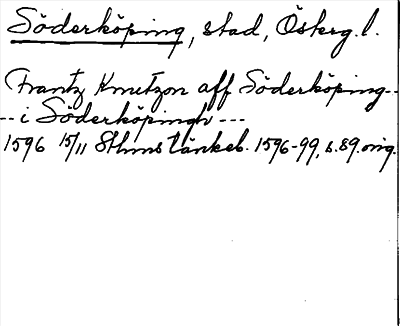 Söderköping, stad, Österg. l.
Frantz Knutzon aff Söderköping--
-- i Söderköpingh ---
1596 15/11 Sthms tänkeb. 1596-99, s. 89. orig.